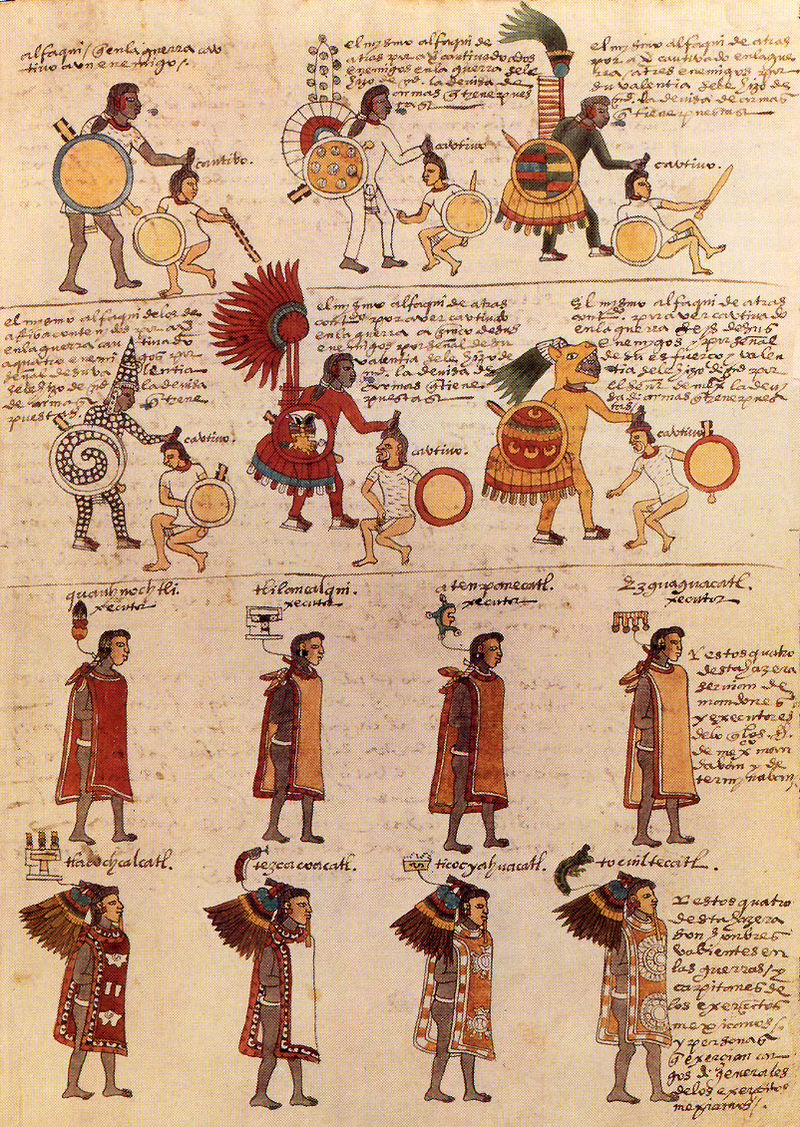 alfaqui / q̃ en la guerra cau
tivo a un enemigo /.
el mismo alfaqui de
atras por a v cautivado dos
enemigos en la guerra sele
hizo md. la devisa de
armas q̃ tiene pues
tas
el mismo alfaqui de atras
por a v cautivado en la gue
rra / a tres enemigos / por
su valentia sele hizo de
md. la devisa de armas
q̃ tiene puestas
cautivo.
cautivo
cautivo.
el mismo alfaqui de los de
atras contenidos por a v
en la guerra cautivado
a quatro enemigos por
señal de su valentia
se le dio de md la devisa
de armas q̃ tiene
puestas.
el mismo alfaqui de atras
contdo. por aver cautivado
en la guerra a cinco de sus
enemigos por señal de su
valentia sele hizo de
md. la devisa de
armas q̃ tiene
puestas
El mismo alfaqui de atras
contdo. por aver cautivado
en la guerra seys de sus
enemigos / por señal
de su esfuerço / valen
tia sele hizo de md por
el señor de mexco la devi
sa de armas q̃ tiene pues
tas
cautivo.
cautivo.
cautivo
quauhnochtli.
xecutor
tlilancalqui.
xecutor
atenpanecatl.
xecutor
Ezguaguacatl.
xecutor
Y estos quatro
desta hazera
servian de
mandones
y executores
de lo q̃ los sres.
de mexco man
davan y de
terminavan
tlacochcalcatl.
tezcacoacatl.
ticocyahuacatl.
tocuiltecatl.
Y estos quatro
desta hazera
son honbres
valientes en
las guerras / y
capitanes de
los exercitos
mexicanos /
y personas
q̃ exercian car
gos de generales
de los exercitos
mexicanos /.